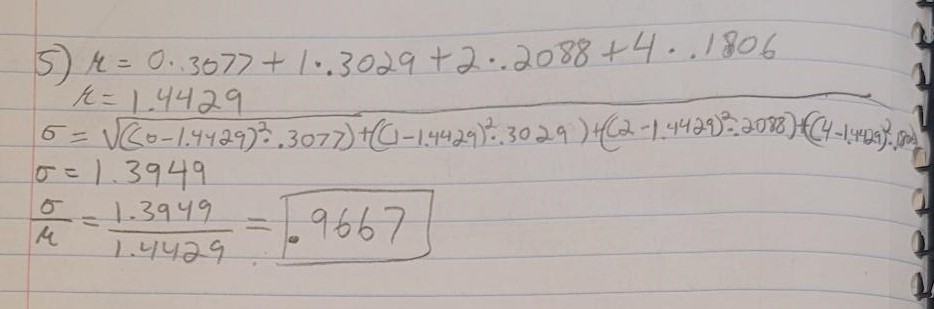 5) μ = 0·.3077 + 1·.3029 + 2·.2088 + 4·.1806
μ = 1.4429
σ = √((0-1.4429)²·.3077)+((1-1.4429)²·.3029)+((2-1.4429)²·.2088)+((4-1.4429)²·.1806)
σ = 1.3949
σ/μ = 1.3949/1.4429 = .9667